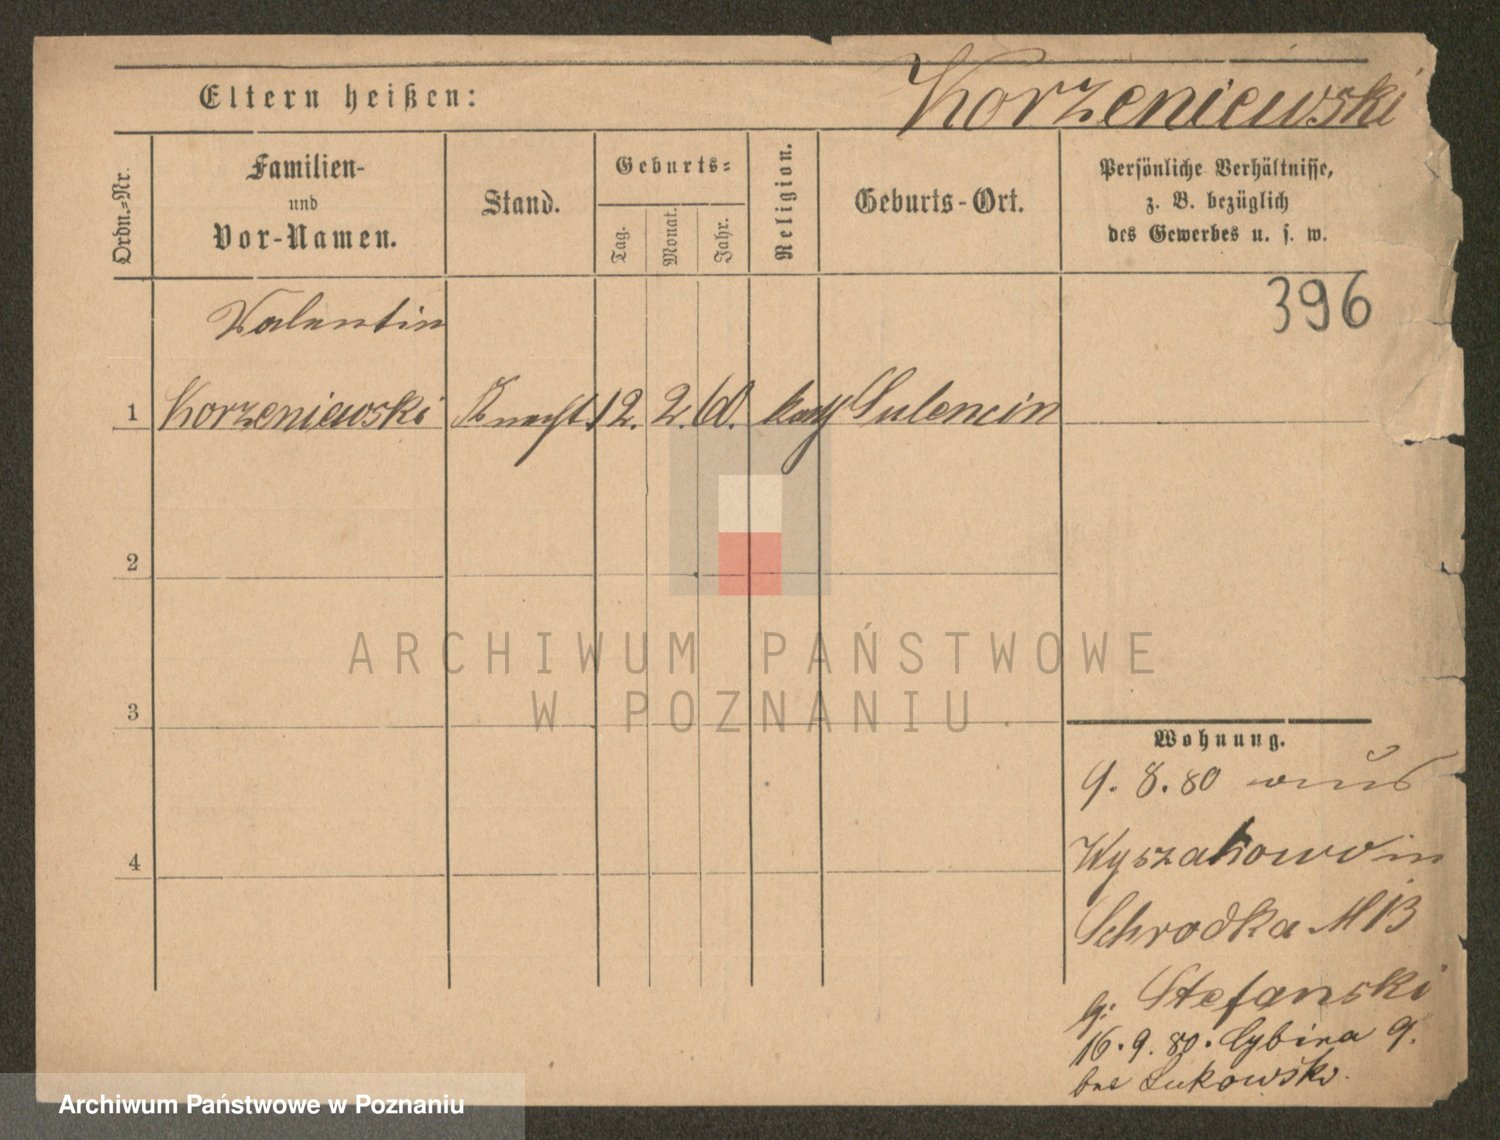 Eltern heißen:
Korzeniewski
Ordn.=Nr.
Familien-
und
Vor-Namen.
Stand.
Geburts=
Tag.
Monat.
Jahr.
Religion.
Geburts-Ort.
Persönliche Verhältnisse,
z. B. bezüglich
des Gewerbes u. s. w.
396
Valentin
1 Korzeniewski Knecht 12. 2. 60. kath Sulencin
2
3
4
Wohnung.
9. 8. 80 aus
Wyszakowo in
Schrodka N 13
Stefanski
16. 9. 80. Cybina 9.
bei Lukowski.
ARCHIWUM PAŃSTWOWE
W POZNANIU
Archiwum Państwowe w Poznaniu